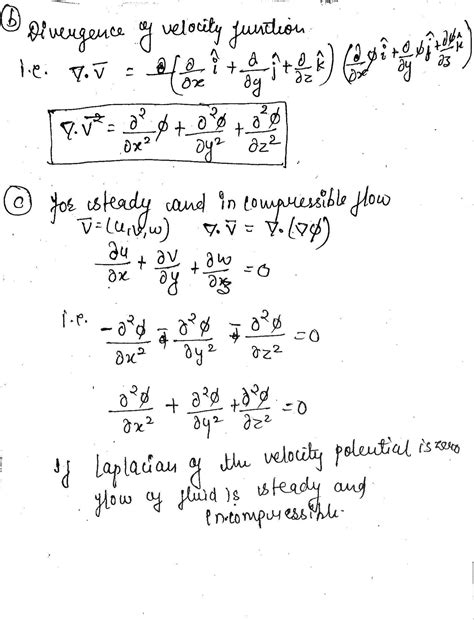 (b) Divergence of velocity function
i.e. ∇.v̅ = (∂/∂x î + ∂/∂y ĵ + ∂/∂z k̂) (∂/∂x ϕ î + ∂/∂y ϕ ĵ + ∂ϕ/∂z k̂)
∇.v̅ = ∂²/∂x² ϕ + ∂²ϕ/∂y² + ∂²ϕ/∂z²
(c) for steady and incompressible flow
v̅ = (u,v,w) ∇.v̅ = ∇.(∇ϕ)
∂u/∂x + ∂v/∂y + ∂w/∂z = 0
i.e. -∂²ϕ/∂x² - ∂²ϕ/∂y² - ∂²ϕ/∂z² = 0
∂²ϕ/∂x² + ∂²ϕ/∂y² + ∂²ϕ/∂z² = 0
If Laplacian of the velocity potential is zero
flow of fluid is steady and
incompressible.